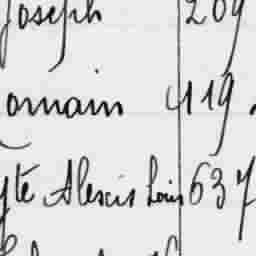 Joseph 209
omain 419.
yte Alexis Louis 637